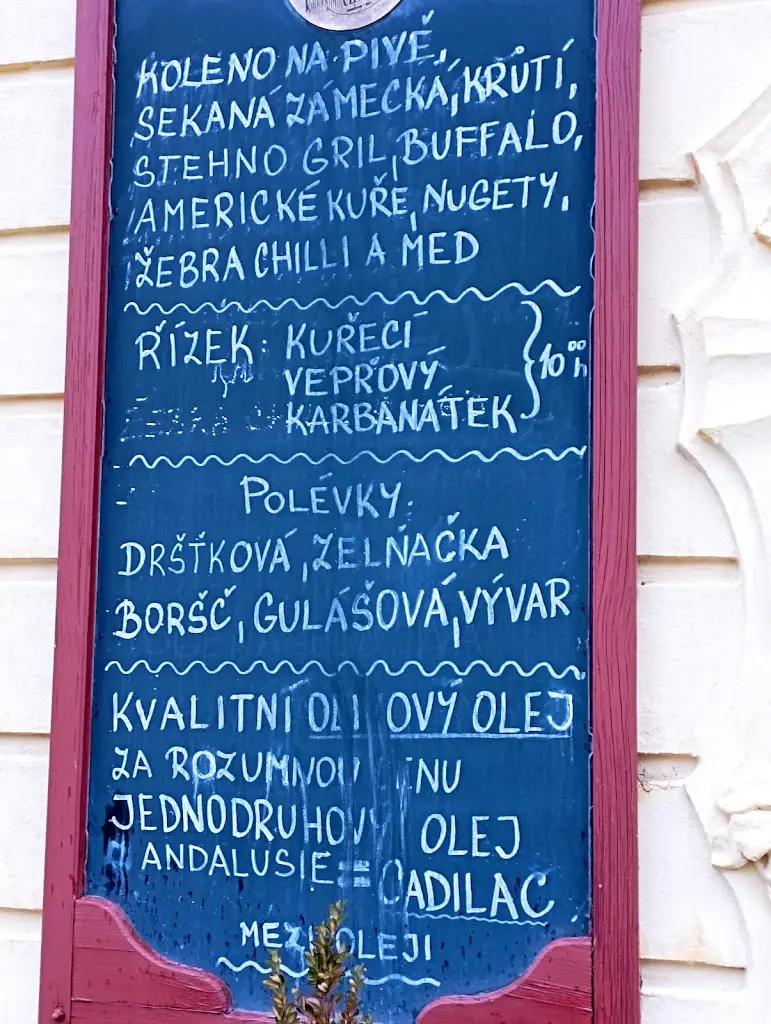 KOLENO NA PIVĚ,
SEKANÁ ZÁMECKÁ, KRŮTÍ,
STEHNO GRIL, BUFFALO,
AMERICKÉ KUŘE, NUGETY,
ŽEBRA CHILLI A MED
ŘÍZEK: KUŘECÍ
VEPŘOVÝ
KARBANÁTEK
10⁰⁰h
POLÉVKY:
DRŠŤKOVÁ, ZELŇAČKA
BORŠČ, GULÁŠOVÁ, VÝVAR
KVALITNÍ OLIVOVÝ OLEJ
ZA ROZUMNOU
JEDNODRUHOVÝ OLEJ
Z ANDALUSIE = CADILAC
MEZI OLEJI